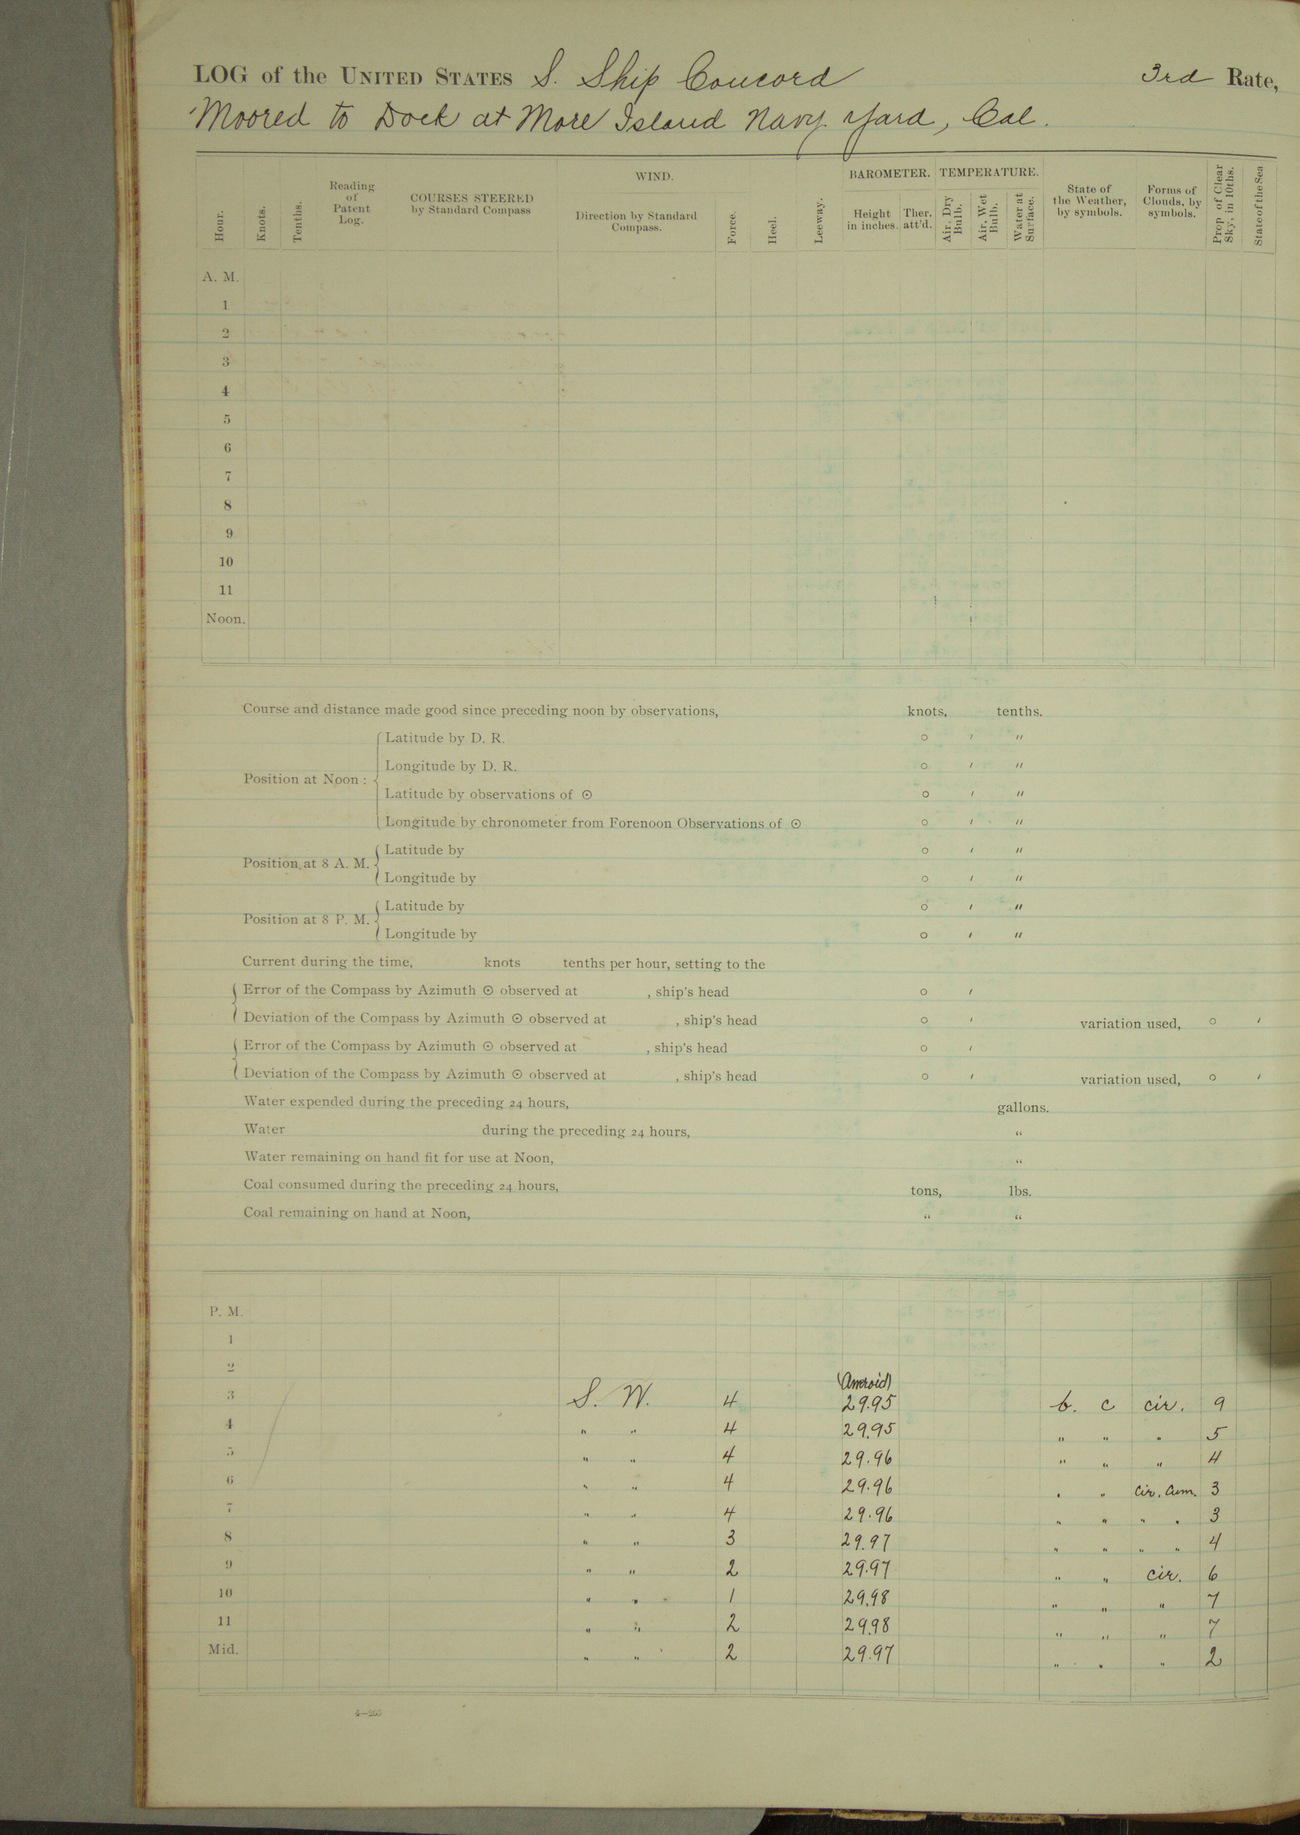 LOG of the UNITED STATES S. Ship Concord 3rd Rate,
Moored to Dock at Mare Island Navy Yard, Cal.
Hour. Knots. Tenths. Reading of Patent Log. COURSES STEERED by Standard Compass WIND. Direction by Standard Compass. Force. Heel. Leeway. BAROMETER. Height in inches. Ther. att'd. TEMPERATURE. Air, Dry Bulb. Air, Wet Bulb. Water at Surface. State of the Weather, by symbols. Forms of Clouds, by symbols. Prop. of Clear Sky, in 10ths. State of the Sea
A. M.
1
2
3
4
5
6
7
8
9
10
11
Noon.
Course and distance made good since preceding noon by observations, knots, tenths.
Position at Noon : Latitude by D. R. ○ ′ ″
Longitude by D. R. ○ ′ ″
Latitude by observations of ☉ ○ ′ ″
Longitude by chronometer from Forenoon Observations of ☉ ○ ′ ″
Position at 8 A. M. Latitude by ○ ′ ″
Longitude by ○ ′ ″
Position at 8 P. M. Latitude by ○ ′ ″
Longitude by ○ ′ ″
Current during the time, knots tenths per hour, setting to the
Error of the Compass by Azimuth ☉ observed at , ship's head ○ ′
Deviation of the Compass by Azimuth ☉ observed at , ship's head ○ ′ variation used, ○ ′
Error of the Compass by Azimuth ☉ observed at , ship's head ○ ′
Deviation of the Compass by Azimuth ☉ observed at , ship's head ○ ′ variation used, ○ ′
Water expended during the preceding 24 hours, gallons.
Water during the preceding 24 hours, "
Water remaining on hand fit for use at Noon, "
Coal consumed during the preceding 24 hours, tons, lbs.
Coal remaining on hand at Noon, " "
P. M.
1
2
(Aneroid)
3 S. W. 4 29.95 b. c cir. 9
4 " " 4 29.95 " " " 5
5 " " 4 29.96 " " " 4
6 " " 4 29.96 " " cir. cum. 3
7 " " 4 29.96 " " " " 3
8 " " 3 29.97 " " " " 4
9 " " 2 29.97 " " cir. 6
10 " " 1 29.98 " " " 7
11 " " 2 29.98 " " " 7
Mid. " " 2 29.97 " " " 2